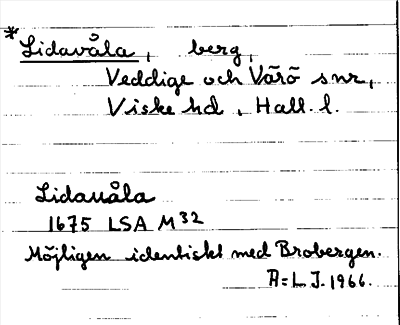 *Lidavåla, berg,
Veddige och Värö snr,
Viske hd, Hall. l.
Lidauåla
1675 LSA M32
Möjligen identiskt med Brobergen.
A=L.J. 1966.